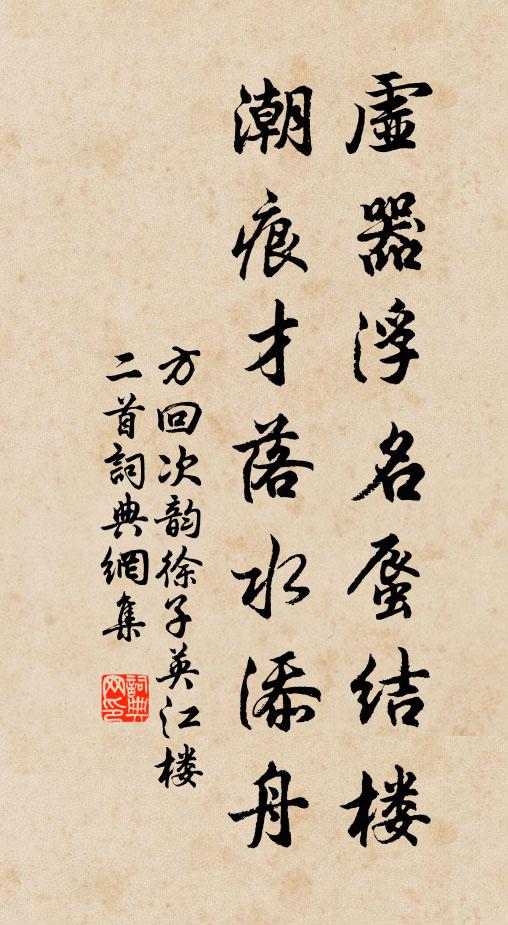 虚器浮名蜃结楼
潮痕才落水添舟
方回次韵徐子英江楼
二首詞典網集
詞典
网印